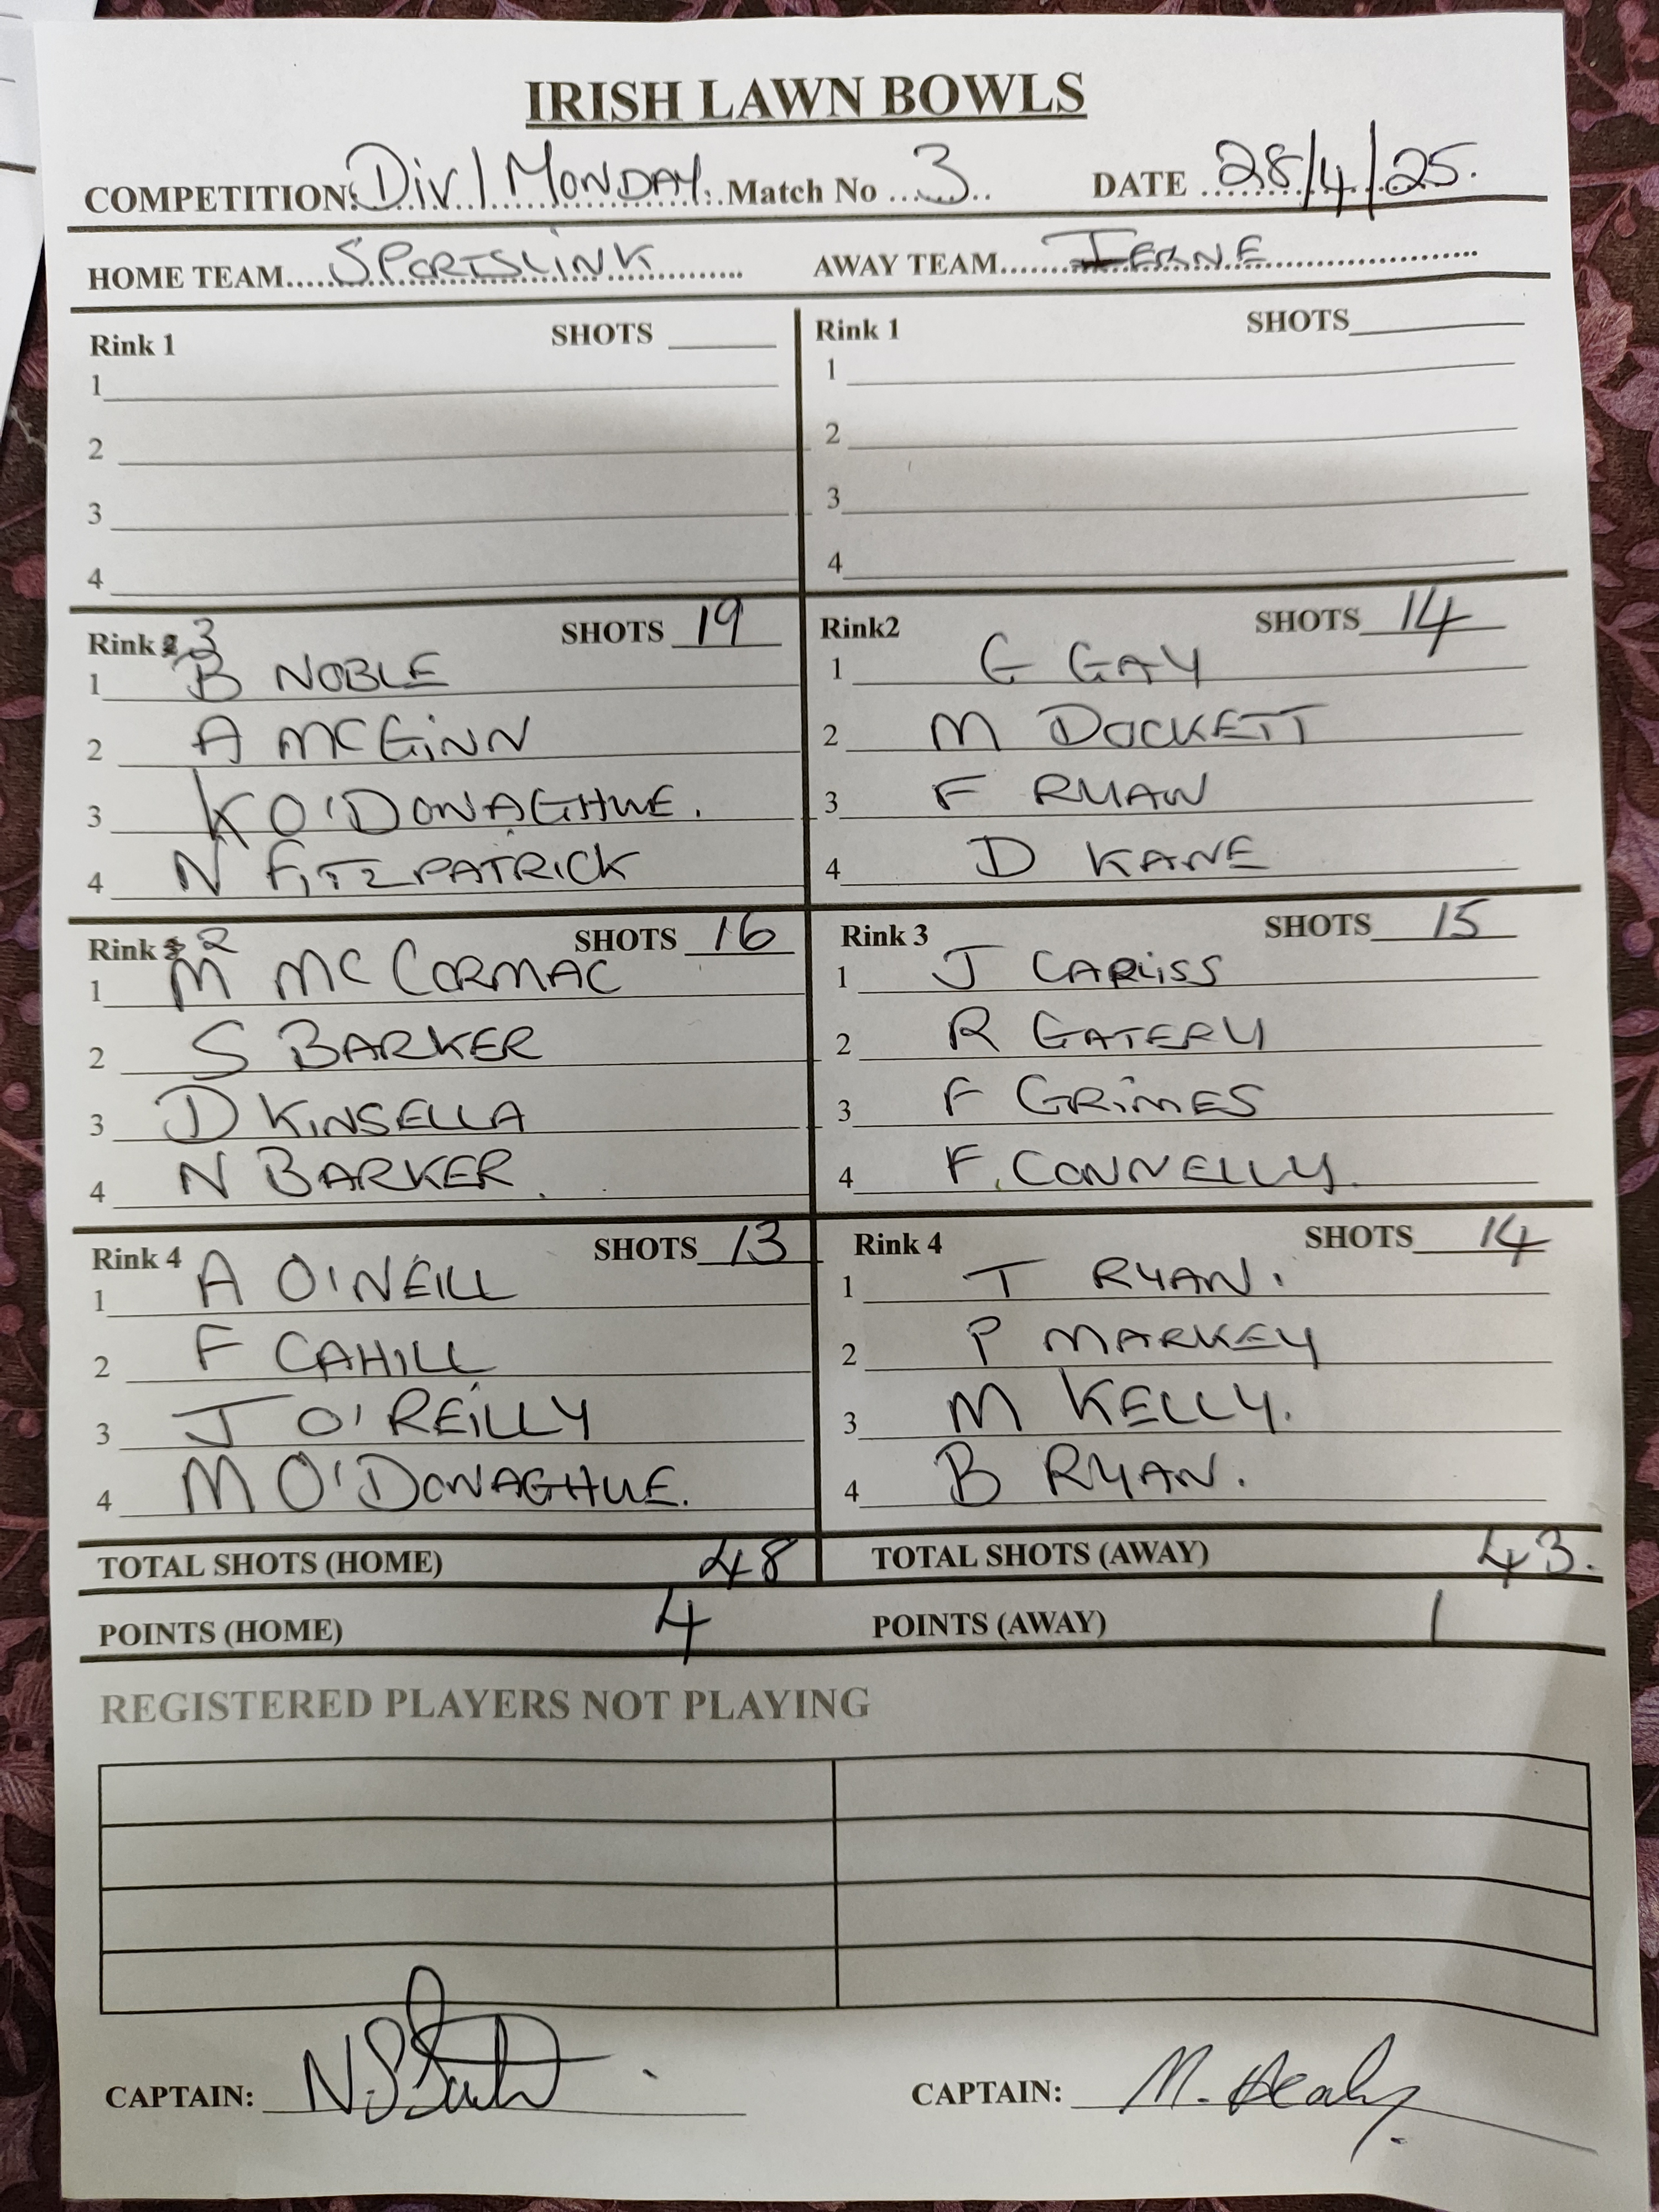 IRISH LAWN BOWLS
COMPETITION: Div 1 MONDAY. Match No 3 DATE 28/4/25.
HOME TEAM SPORTSLINK AWAY TEAM IERNE
Rink 1 SHOTS
1
2
3
4
Rink 1 SHOTS
1
2
3
4
Rink 3 SHOTS 19
1 B NOBLE
2 A MCGINN
3 K O'DONAGHUE.
4 N FITZPATRICK
Rink2 SHOTS 14
1 G GAY
2 M DOCKETT
3 F RYAN
4 D KANE
Rink 2 SHOTS 16
1 M MC CORMAC
2 S BARKER
3 D KINSELLA
4 N BARKER.
Rink 3 SHOTS 15
1 J CARLISS
2 R GATERY
3 F GRIMES
4 F. CONNELLY.
Rink 4 SHOTS 13
1 A O'NEILL
2 F CAHILL
3 J O'REILLY
4 M O'DONAGHUE.
Rink 4 SHOTS 14
1 T RYAN.
2 P MARKEY
3 M KELLY.
4 B RYAN.
TOTAL SHOTS (HOME) 48 TOTAL SHOTS (AWAY) 43.
POINTS (HOME) 4 POINTS (AWAY) 1
REGISTERED PLAYERS NOT PLAYING
CAPTAIN: CAPTAIN: M. Healy